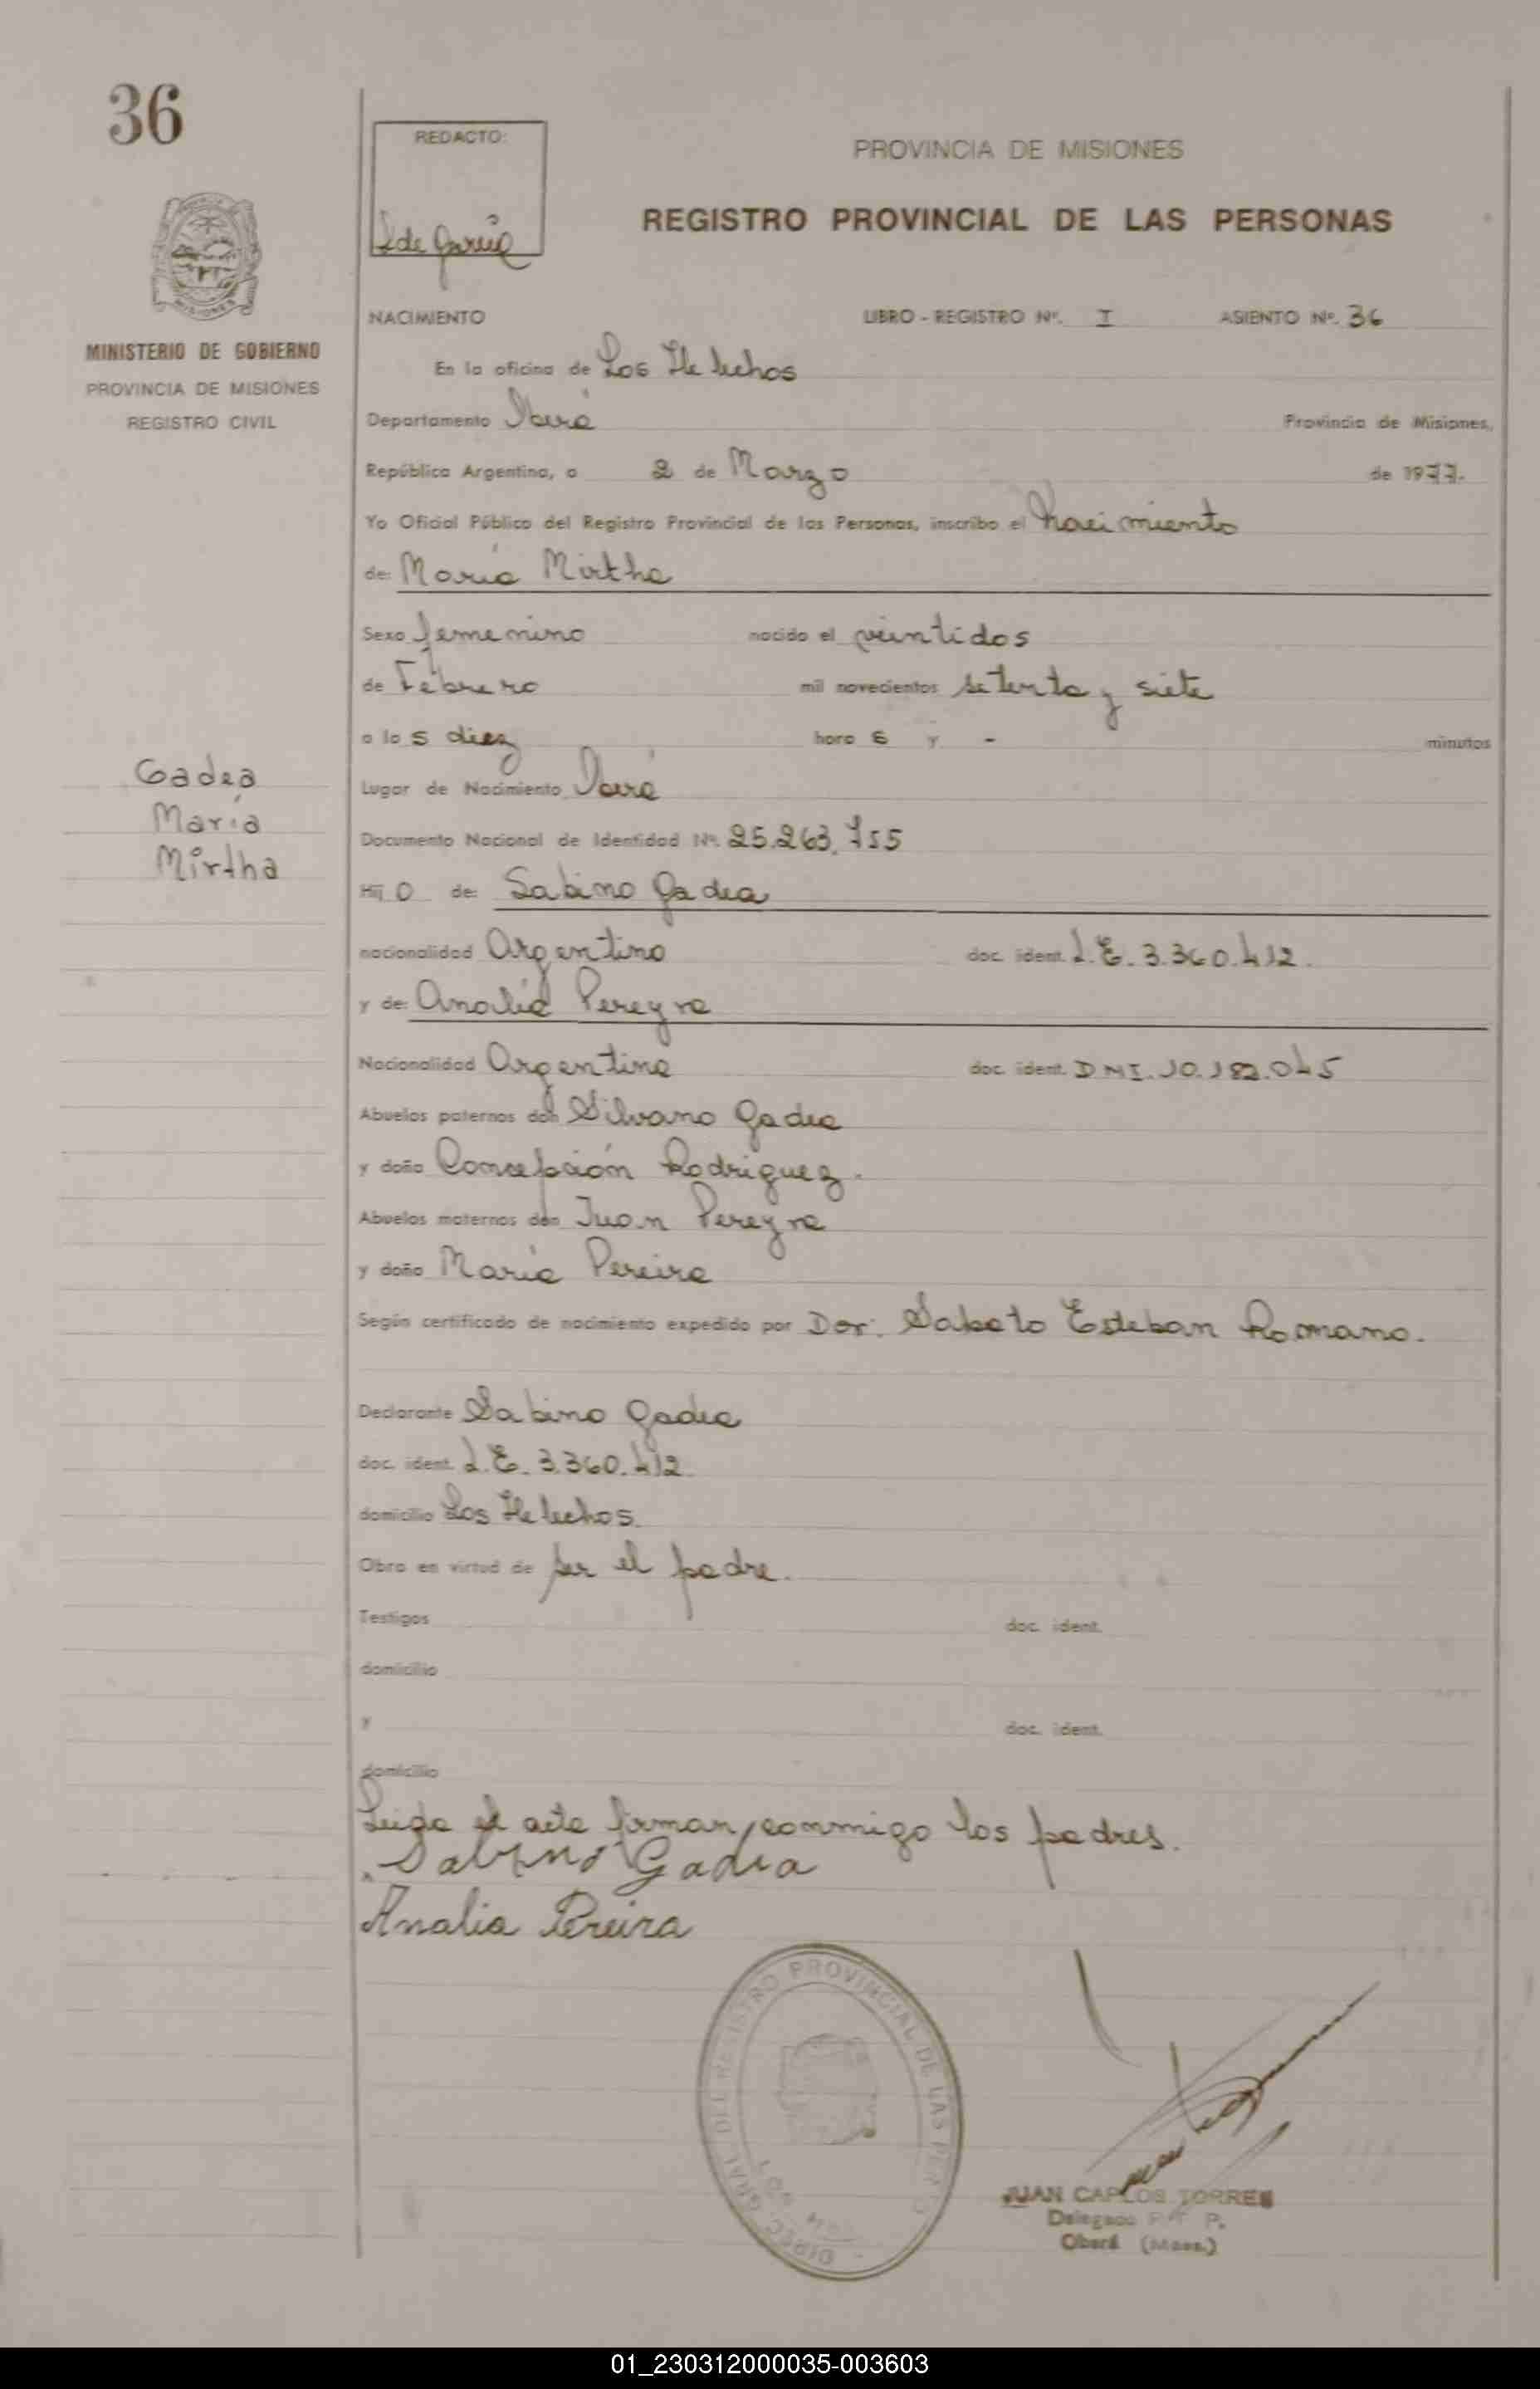 36
REDACTO:
PROVINCIA DE MISIONES
REGISTRO PROVINCIAL DE LAS PERSONAS
MISIONES
MINISTERIO DE GOBIERNO
PROVINCIA DE MISIONES
REGISTRO CIVIL
NACIMIENTO LIBRO - REGISTRO Nº. I ASIENTO Nº. 36
En la oficina de Los Helechos
Departamento Oberá Provincia de Misiones,
República Argentina, a 2 de Marzo de 1977.
Yo Oficial Público del Registro Provincial de las Personas, inscribo el Nacimiento
de: María Mirtha
Sexo femenino nacido el veintidos
de Febrero mil novecientos setenta y siete
a las diez hora s y - minutos
Lugar de Nacimiento Oberá
Gadea
María
Mirtha
Documento Nacional de Identidad Nº. 25.263.755
Hij O de: Sabino Gadea
nacionalidad Argentino doc. ident. L.E. 3.360.412.
y de: Analía Pereyra
Nacionalidad Argentina doc. ident. DNI. 10.182.045
Abuelos paternos don Silvano Gadea
y doña Concepción Rodriguez.
Abuelos maternos don Juan Pereyra
y doña María Pereira
Según certificado de nacimiento expedido por Dor. Sabato Esteban Romano.
Declarante Sabino Gadea
doc. ident. L.E. 3.360.412.
domicilio Los Helechos.
Obra en virtud de ser el padre.
Testigos doc. ident.
domicilio
y doc. ident.
domicilio
Leida el acta firman conmigo los padres.
Sabino Gadea
Analia Pereira
DIREC. GRAL. DEL REGISTRO PROVINCIAL DE LAS
JUAN CARLOS TORRES
Delegado
Oberá (Mnes.)
01_230312000035-003603